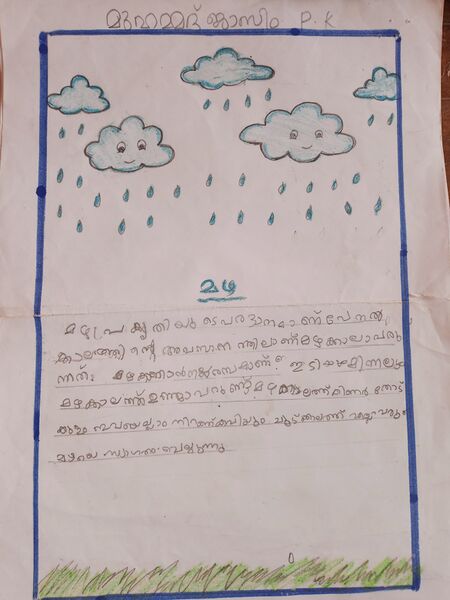 മുഹമ്മദ് ജാസിം P.K
മഴ
മഴ പ്രകൃതിയുടെ വരദാനമാണ് വേനൽ
കാലത്തിന്റെ അവസാനത്തിലാണ് മഴക്കാലം വരു
ന്നത്. മഴക്കാൽ രസമാണ്. ഇടിയും മിന്നലും
മഴകാലത്ത് ഉണ്ടാവാറുണ്ട് മഴക്കാലത്ത് കിണർ തോട്
എല്ലാം നിറഞ്ഞ് കവിയും
മഴയെ സ്വാഗതം ചെയ്യുന്നു